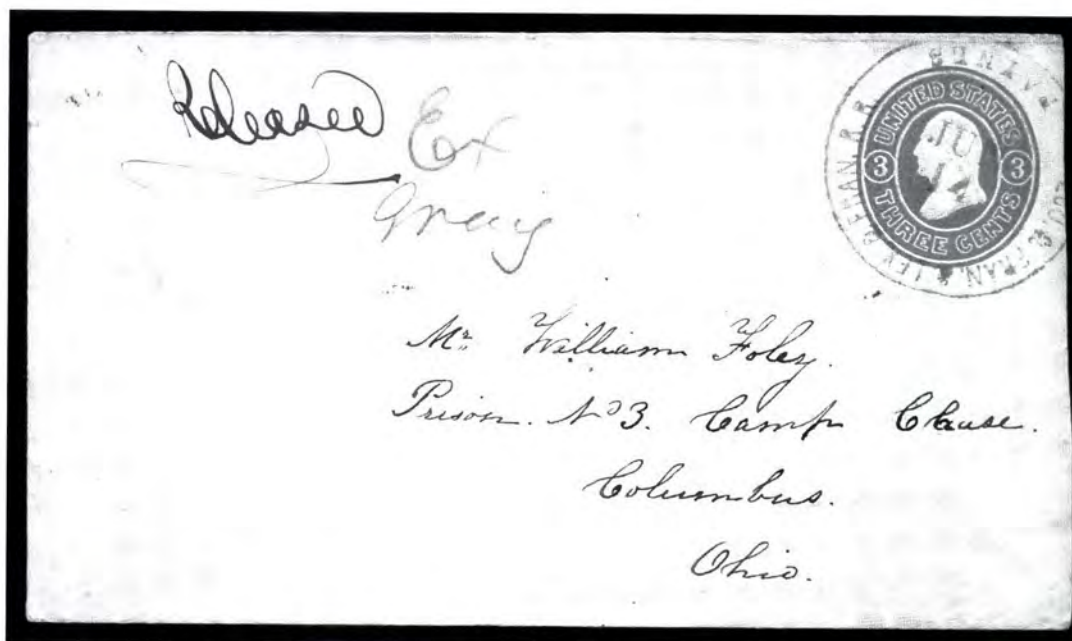 Released
Ex
Greig
UNITED STATES
3 3
THREE CENTS
JU
LOU. & FRAN. & LEX. & FRAN. R.R.
Mr. William Foley.
Prison. No 3. Camp Chase.
Columbus.
Ohio.